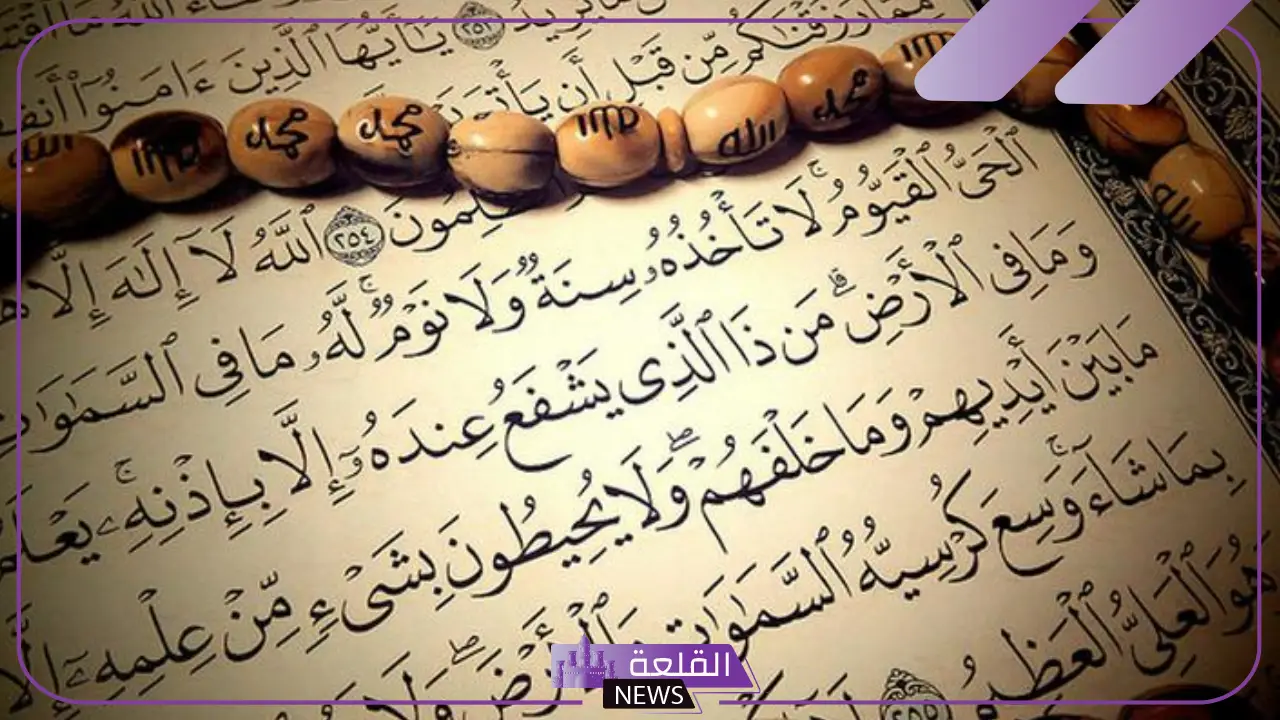 يُرِيدُ ٢٥٣ يَٰٓأَيُّهَا ٱلَّذِينَ ءَامَنُوٓا۟
مِمَّا رَزَقْنَٰكُم مِّن قَبْلِ أَن
الله محمد محمد الله محمد الله
٢٥٤ ٱللَّهُ لَآ إِلَٰهَ إِلَّا
ٱلْحَىُّ ٱلْقَيُّومُ ۚ لَا تَأْخُذُهُۥ سِنَةٌ وَلَا نَوْمٌ ۚ لَّهُۥ مَا فِى ٱلسَّمَٰوَٰتِ
وَمَا فِى ٱلْأَرْضِ ۗ مَن ذَا ٱلَّذِى يَشْفَعُ عِندَهُۥٓ إِلَّا بِإِذْنِهِۦ ۚ يَعْلَمُ
مَا بَيْنَ أَيْدِيهِمْ وَمَا خَلْفَهُمْ ۖ وَلَا يُحِيطُونَ بِشَىْءٍ مِّنْ عِلْمِهِۦٓ إِلَّا
بِمَا شَآءَ ۚ وَسِعَ كُرْسِيُّهُ ٱلسَّمَٰوَٰتِ وَٱلْأَرْضَ ۖ وَلَا
هُوَ ٱلْعَلِىُّ ٱلْعَظِيمُ ٢٥٥
القلعة
NEWS